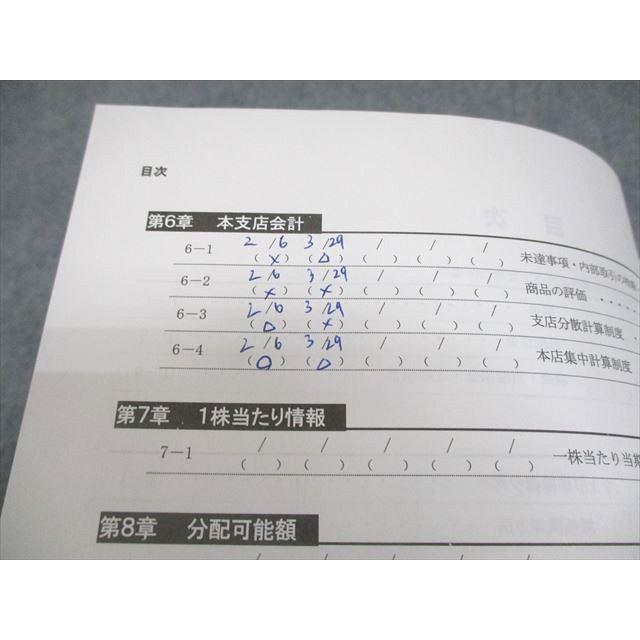 目次
第6章 本支店会計
6-1 2/6 3/29 / / /
(×) (△) ( ) ( ) ( ) 未達事項・内部取引の
6-2 2/6 3/29 / / /
(×) (×) ( ) ( ) ( ) 商品の評価 ・・・・
6-3 2/6 3/29 / / /
(△) (×) ( ) ( ) ( ) 支店分散計算制度 ・
6-4 2/6 3/29 / / /
(○) (△) ( ) ( ) ( ) 本店集中計算制度
第7章 1株当たり情報
7-1 / / / / /
( ) ( ) ( ) ( ) ( ) 一株当たり当期
第8章 分配可能額
/ / / / /